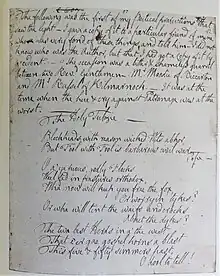 The following was the first of my Poetical productions that
saw the light — I gave a copy of it to a particular friend of mine
who was very fond of these things, and told him — I did not
know who was the Author, but that I had got a copy of it by
accident — The occasion was a bitter & shameless quarrel
between two Revd. Gentlemen, Mr Moodie of Riccarton
and Mr Russell of Kilmarnock — It was at the
time when the hue & cry against Patronage was at the
worst. —
The Holy Tulzie —
Blockheads with reason wicked Wits abhor,
But Fool with Fool is barbarous civil war,
Pope —
O a' ye pious, godly Flocks
Weel fed in pastures orthodox,
Wha now will keep you frae the fox,
Or worryin tykes?
Or wha will tent the waifs & crocks
About the dykes?
The twa best Herds in a' the west
That e'er gae gospel horns a blast
This five & fifty simmers past
O dool to tell!